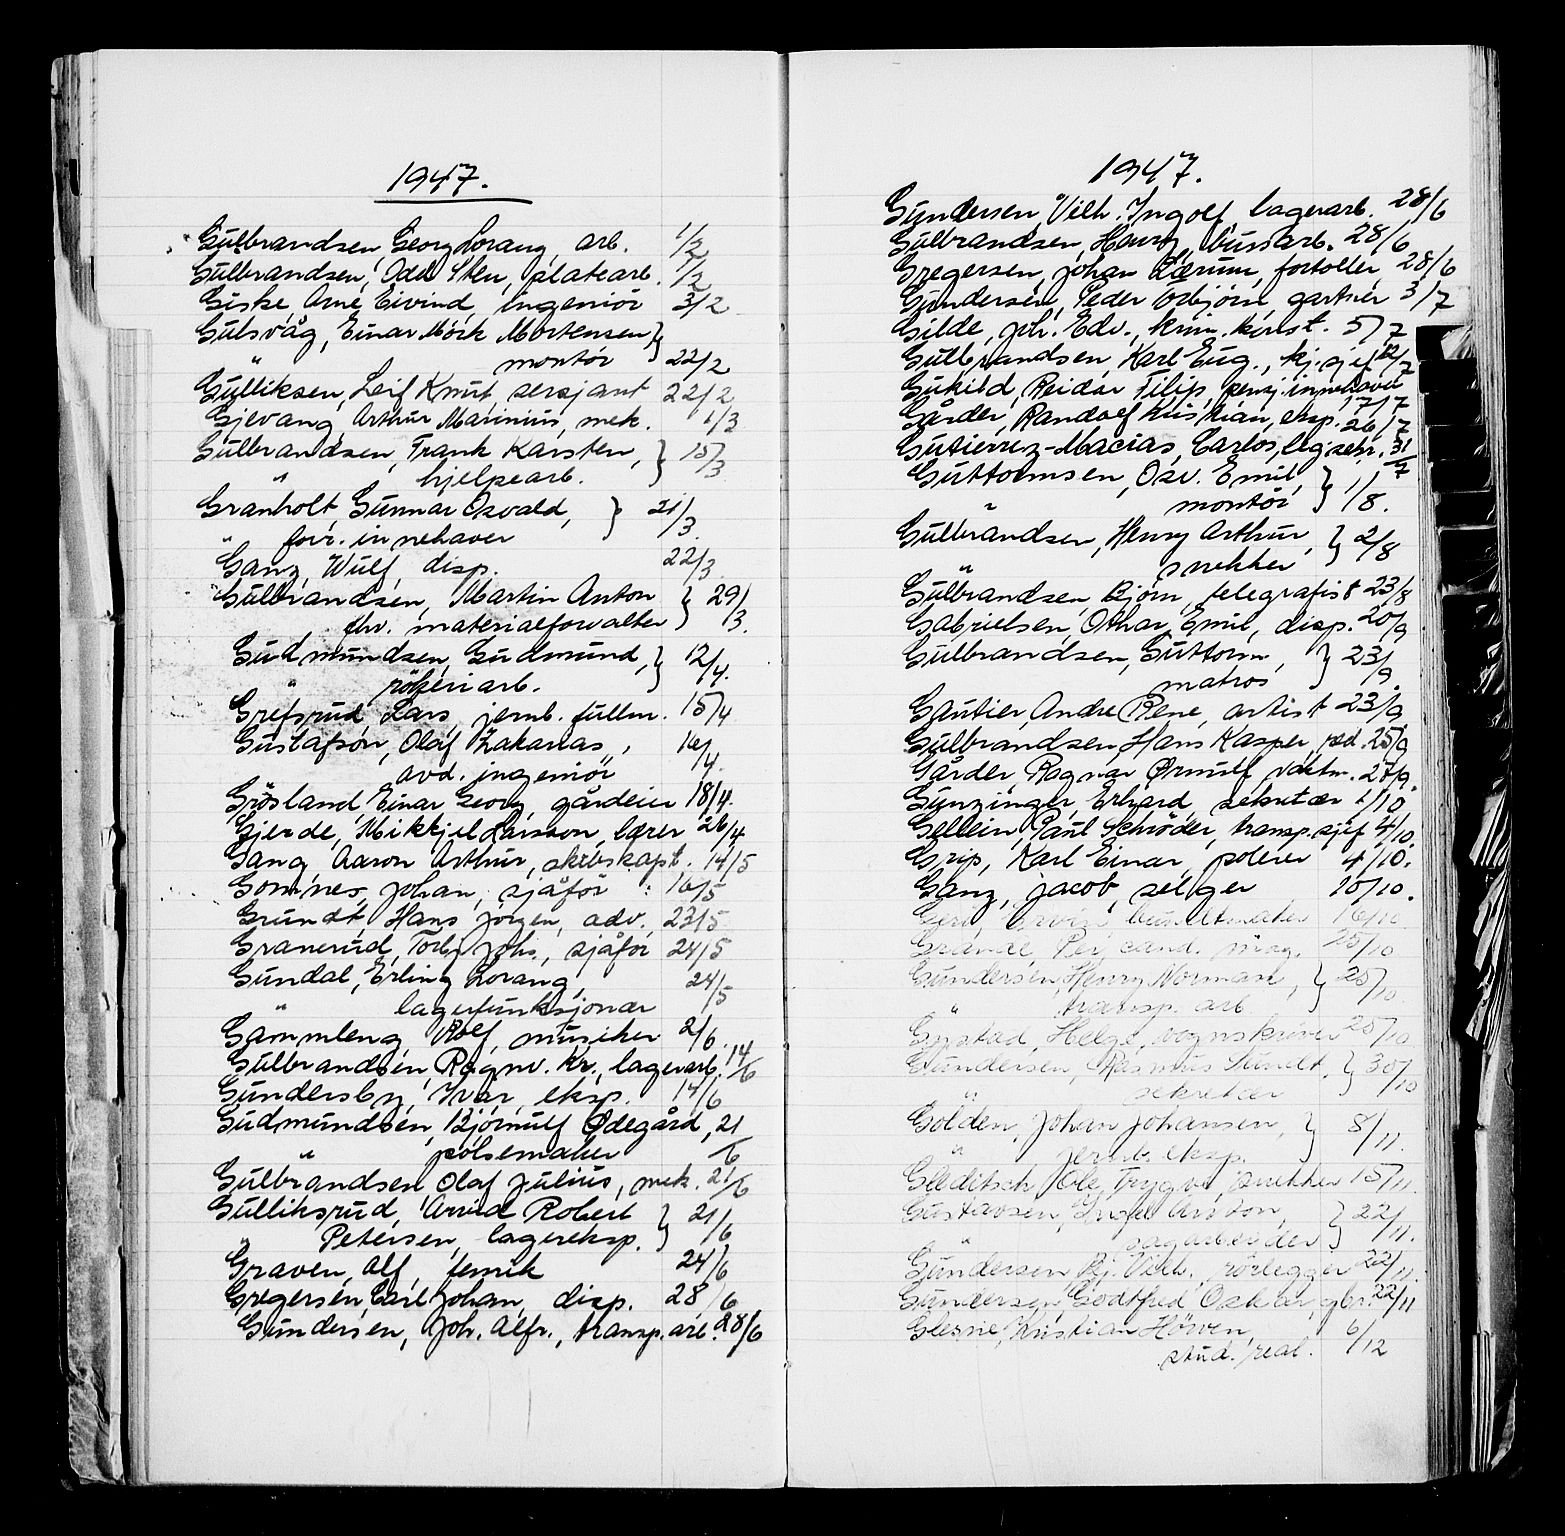 1947.
Gulbrandsen, Georg Lorang, arb. 1/2
Gulbrandsen, Odd Sten, platearb. 1/2
Giske, Arne Eivind, ingeniør 3/2
Gulsvåg, Einar Mörk Mortensen }
" montör 22/2
Gulliksen, Leif Knut, sersjant 22/2
Gjevang, Arthur Marinius, mek. 1/3
Gulbrandsen, Frank Karsten, } 15/3
" hjelpearb.
Granholt, Gunnar Osvald, } 21/3
" forr. innehaver
Ganz, Wulf, disp. 22/3
Gulbrandsen, Martin Anton } 29/3.
fhv. materialforvalter
Gudmundsen, Gudmund, } 12/4.
" rökeriarb.
Grefsrud, Lars, jernb. fullm. 15/4
Gustafson, Olaf Zakarias, 16/4.
avd. ingeniör
Grösland, Einar Georg, gårdeier 18/4.
Gjerde, Mikkjel Larsson, lærer 26/4
Gang, Aaron Arthur, skibskapt. 14/5
Gomnes, Johan, sjåför 16/5
Grundt, Hans Jörgen, adv. 23/5
Granerud, Torbj. Johs., sjåför 24/5
Gundal, Erling Lorang, 24/5
" lagerfunksjonær
Gammleng, Rolf, musiker 2/6.
Gulbrandsen, Ragnv. Kr., lagerarb. 14/6
Gundersby, Ivar, eksp. 14/6
Gudmundsen, Bjørnulf Ødegård, 21
" pölsemaker /6
Gulbrandsen, Olaf Julius, mek. 21/6
Gulliksrud, Arvid Robert } 21/6
" Petersen, lagereksp.
Graven, Alf, temik 24/6
Gregersen, Carl Johan, disp. 28/6
Gundersen, Joh. Alfr., transp.arb. 28/6
1947.
Gundersen, Vilh. Ingolf, lagerarb. 28/6
Gulbrandsen, Henry, bussarb. 28/6
Gregersen, Johan Lærum, fortoller 28/6
Gundersen, Peder Torbjörn, gartner 3/7
Gilde, Joh. Edv., krim. konst. 5/7
Gulbrandsen, Karl Eug., kj. sjef 12/7
Gukild, Reidar Filip, pensj. innehaver
17/7
Gårder, Randolf Kristian, eksp. 26/7
Gutierrez-Macias, Carlos, leg.sekr. 31/7
Guttormsen, Osv. Emil, } 1/8.
" montör
Gulbrandsen, Henry Arthur, } 2/8
" snekker
Gulbrandsen, Björn, telegrafist 23/8
Gabrielsen, Othar Emil, disp. 20/9
Gulbrandsen, Guttorm, } 23/9.
matros
Gautier, Andre Rene, artist 23/9.
Gulbrandsen, Hans Kasper, red. 25/9.
Gårder, Ragnar Ørnulf, vaktm. 27/9.
Gunzinger, Erhard, sekretær 1/10
Gellein, Paul Schröder, transp. sjef 4/10.
Grip, Karl Einar, polerer 4/10.
Ganz, Jacob, selger 10/10.
buntmaker 16/10
Grande, Per, cand. mag. 25/10
Gundersen, Henry Norman, } 25/10.
" transp. arb.
Gystad, Helge, vognskriver 25/10
Gundersen, Rasmus Sundt, } 30/10
" sekretær
Golden, Johan Johansen, } 8/11.
" jernb. eksp.
Gleditsch, Ole Trygve, snekker 15/11.
Gustavsen, Ingel Anton, } 22/11.
" sagarbeider
Gundersen, Bj. Vilh., rörlegger 22/11.
Gundersen, Godtfred Oskar, gbr. 22/11
Glesne, Kristian Höwen, 6/12
stud. real.